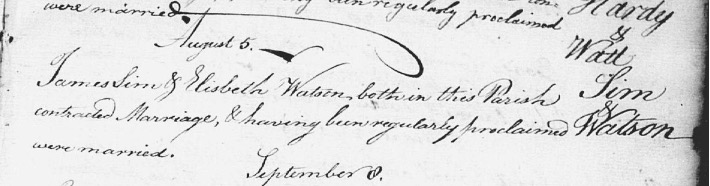 been regularly proclaimed Hardy
were married. &
August 5. Watt
James Sim & Elisbeth Watson, both in this Parish Sim
contracted Marriage, & having been regularly proclaimed & Watson
were married.
September 8.